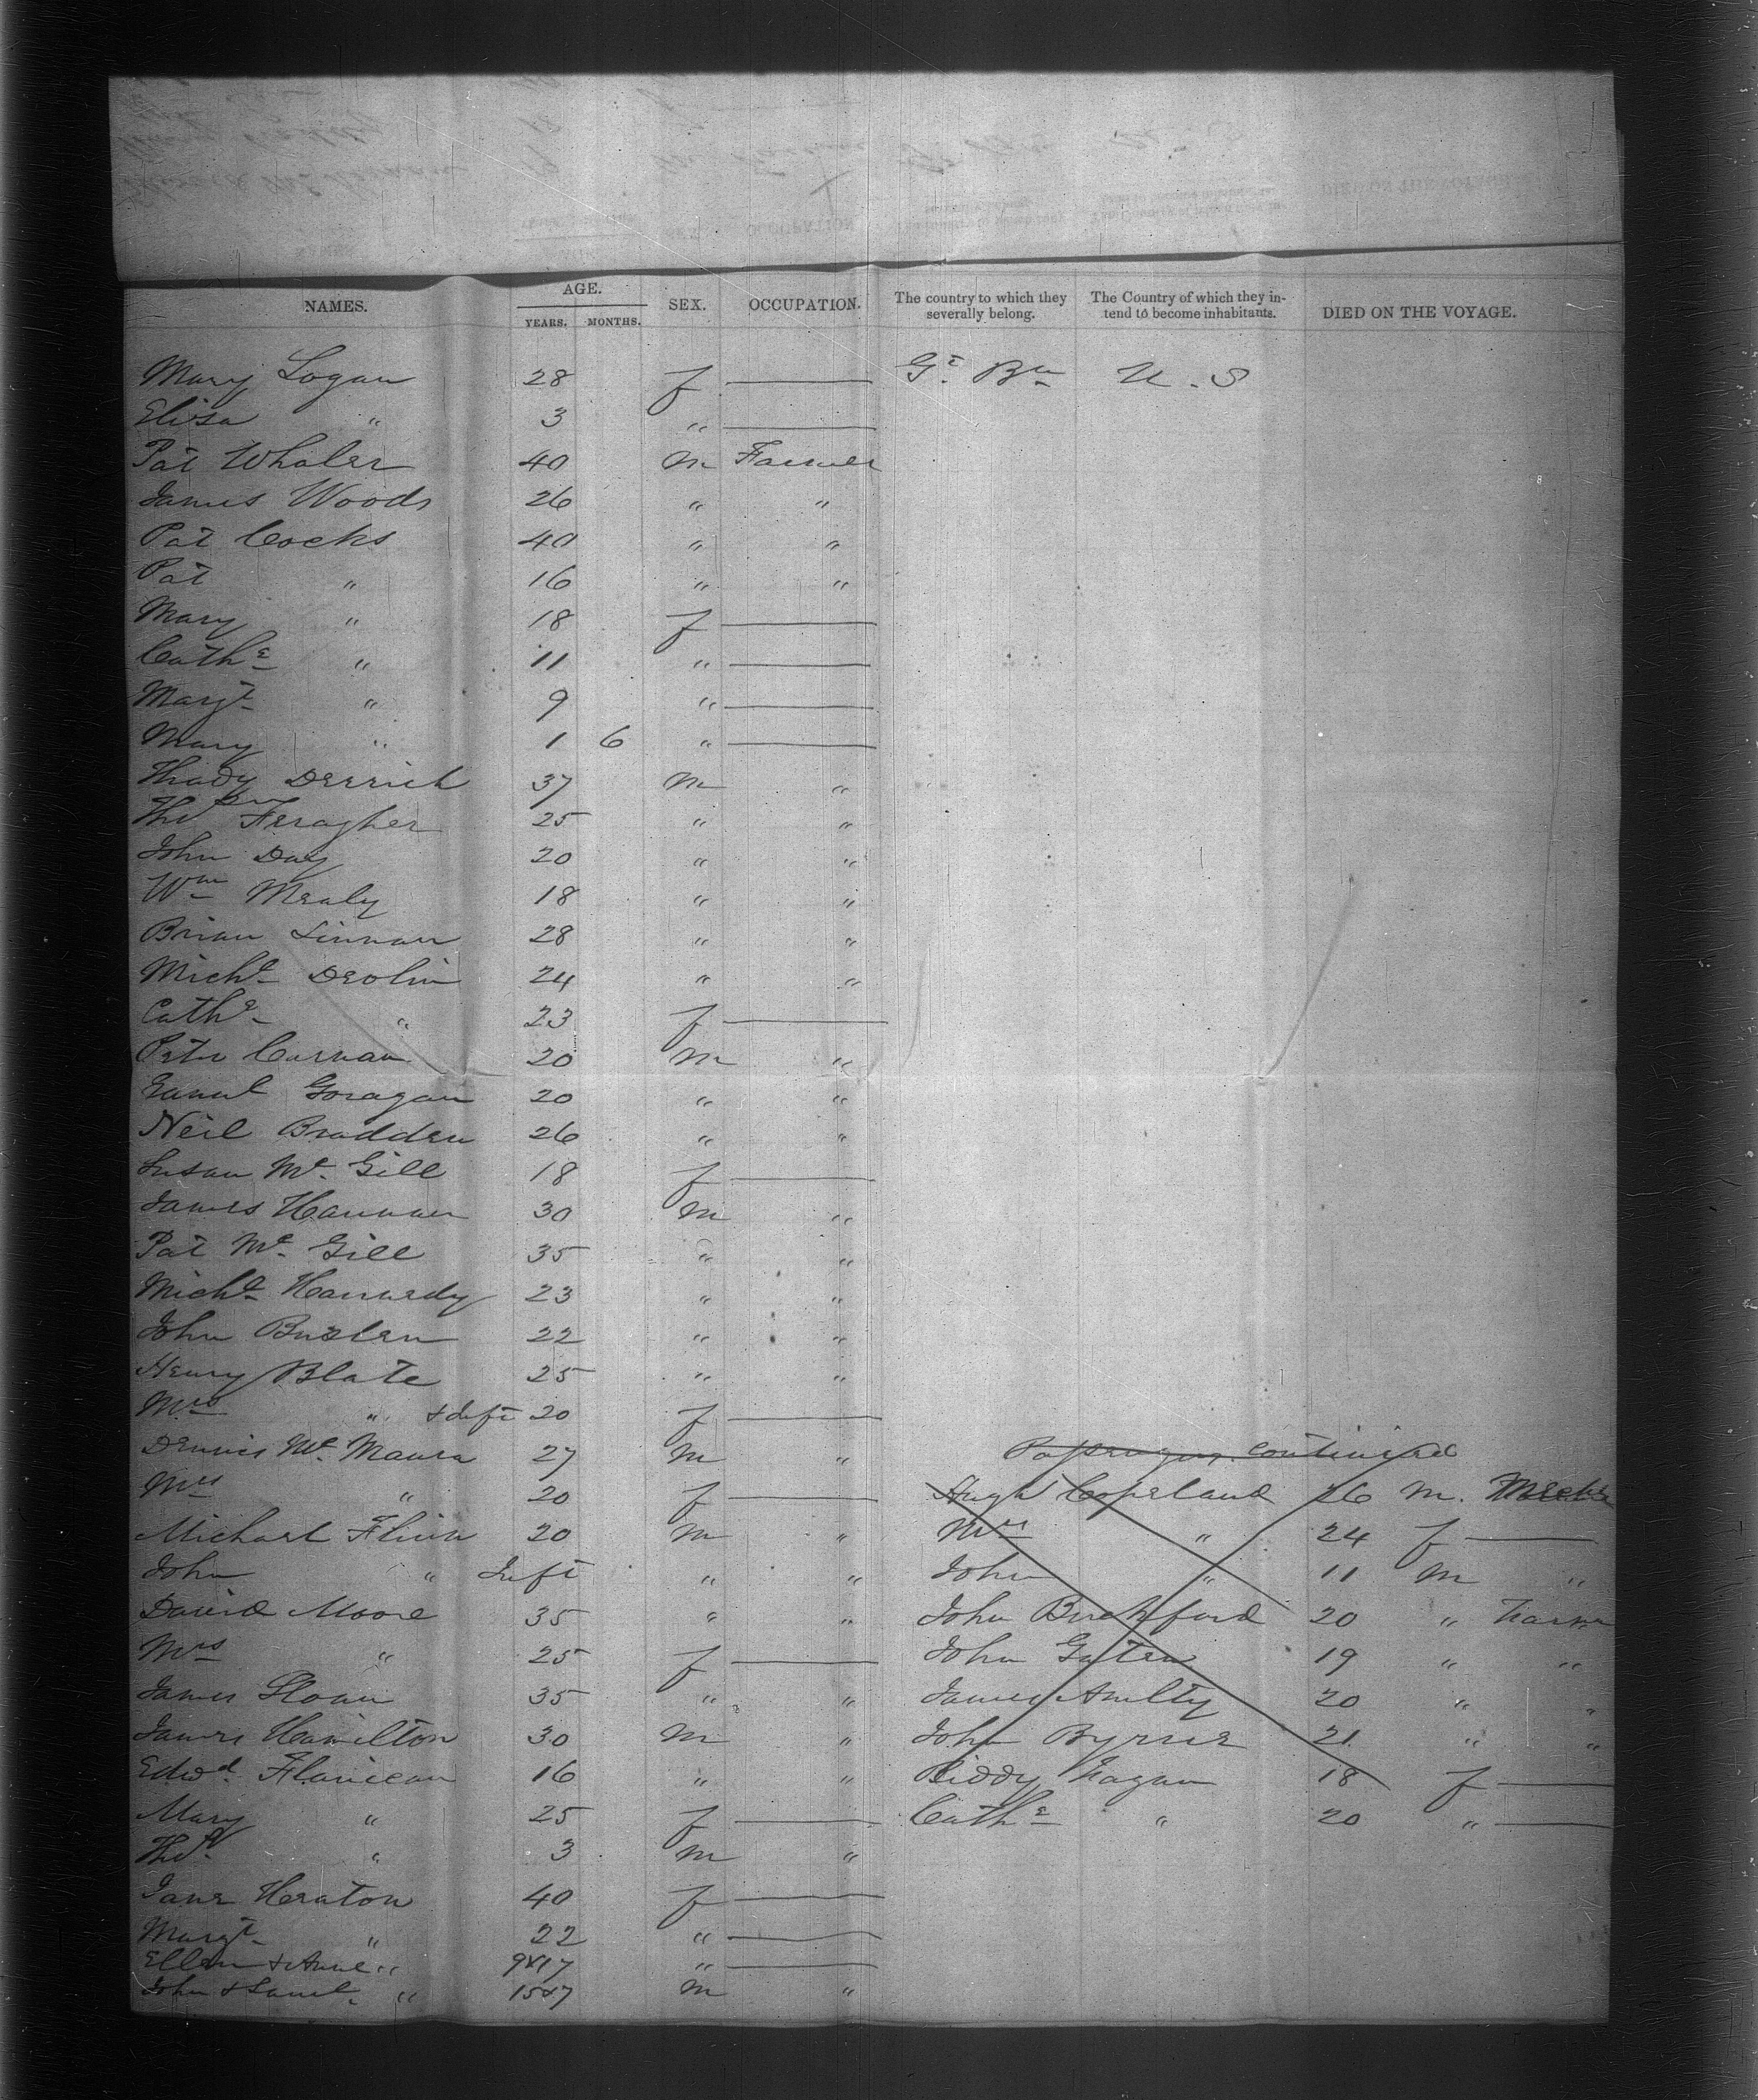 NAMES. AGE. YEARS. MONTHS. SEX. OCCUPATION. The country to which they severally belong. The Country of which they intend to become inhabitants. DIED ON THE VOYAGE.
Mary Logan 28 f — Gt Bn U.S
Eliza " 3 " —
Pat Whalen 40 m Farmer
James Woods 26 " "
Pat Cocks 40 " "
Pat " 16 " "
Mary " 18 f —
Cathe " 11 " —
Margt " 9 " —
Mary " 1 6 " —
Thady Derrick 37 m "
Thos Feragher 25 " "
John Day 20 " "
Wm Mealy 18 " "
Brian Linnan 28 " "
Michl Devlin 24 " "
Cathe " 23 f —
Peter Curnan 20 m "
Saml Goragan 20 " "
Neil Bradden 26 " "
Susan Mc Gill 18 f —
James Hannan 30 m "
Pat Mc Gill 35 " "
Michl Kennedy 23 " "
John Breslen 22 " "
Henry Blate 25 " "
Mrs " & Inft 20 f —
Dennis Mc Manra 27 m "
Mrs " 20 f —
Michael Flinn 20 m "
John " Inft " "
David Moore 35 " "
Mrs " 25 f —
James Sloan 35 " "
James Hamilton 30 m "
Edwd Flanican 16 " "
Mary " 25 f —
Thos " 3 m "
Jane Heaton 40 f —
Margt " 22 " —
Ellen & Anne " 9&17 " —
John & Saml " 15&7 m "
Passengers continued
Hugh Copeland 26 m. Mechc
Mrs " 24 f —
John " 11 m "
John Birchford 20 " Farmer
John Gaten 19 " "
James Anilty 20 " "
John Byrne 21 " "
Biddy Fagan 18 f —
Cathe " 20 " —